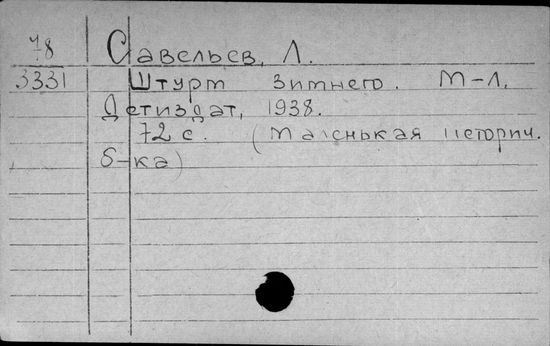 78 Савельев, Л.
3331 Штурм Зимнего. М-Л,
Детиздат, 1938.
72 с. (Маленькая историч.
б-ка)